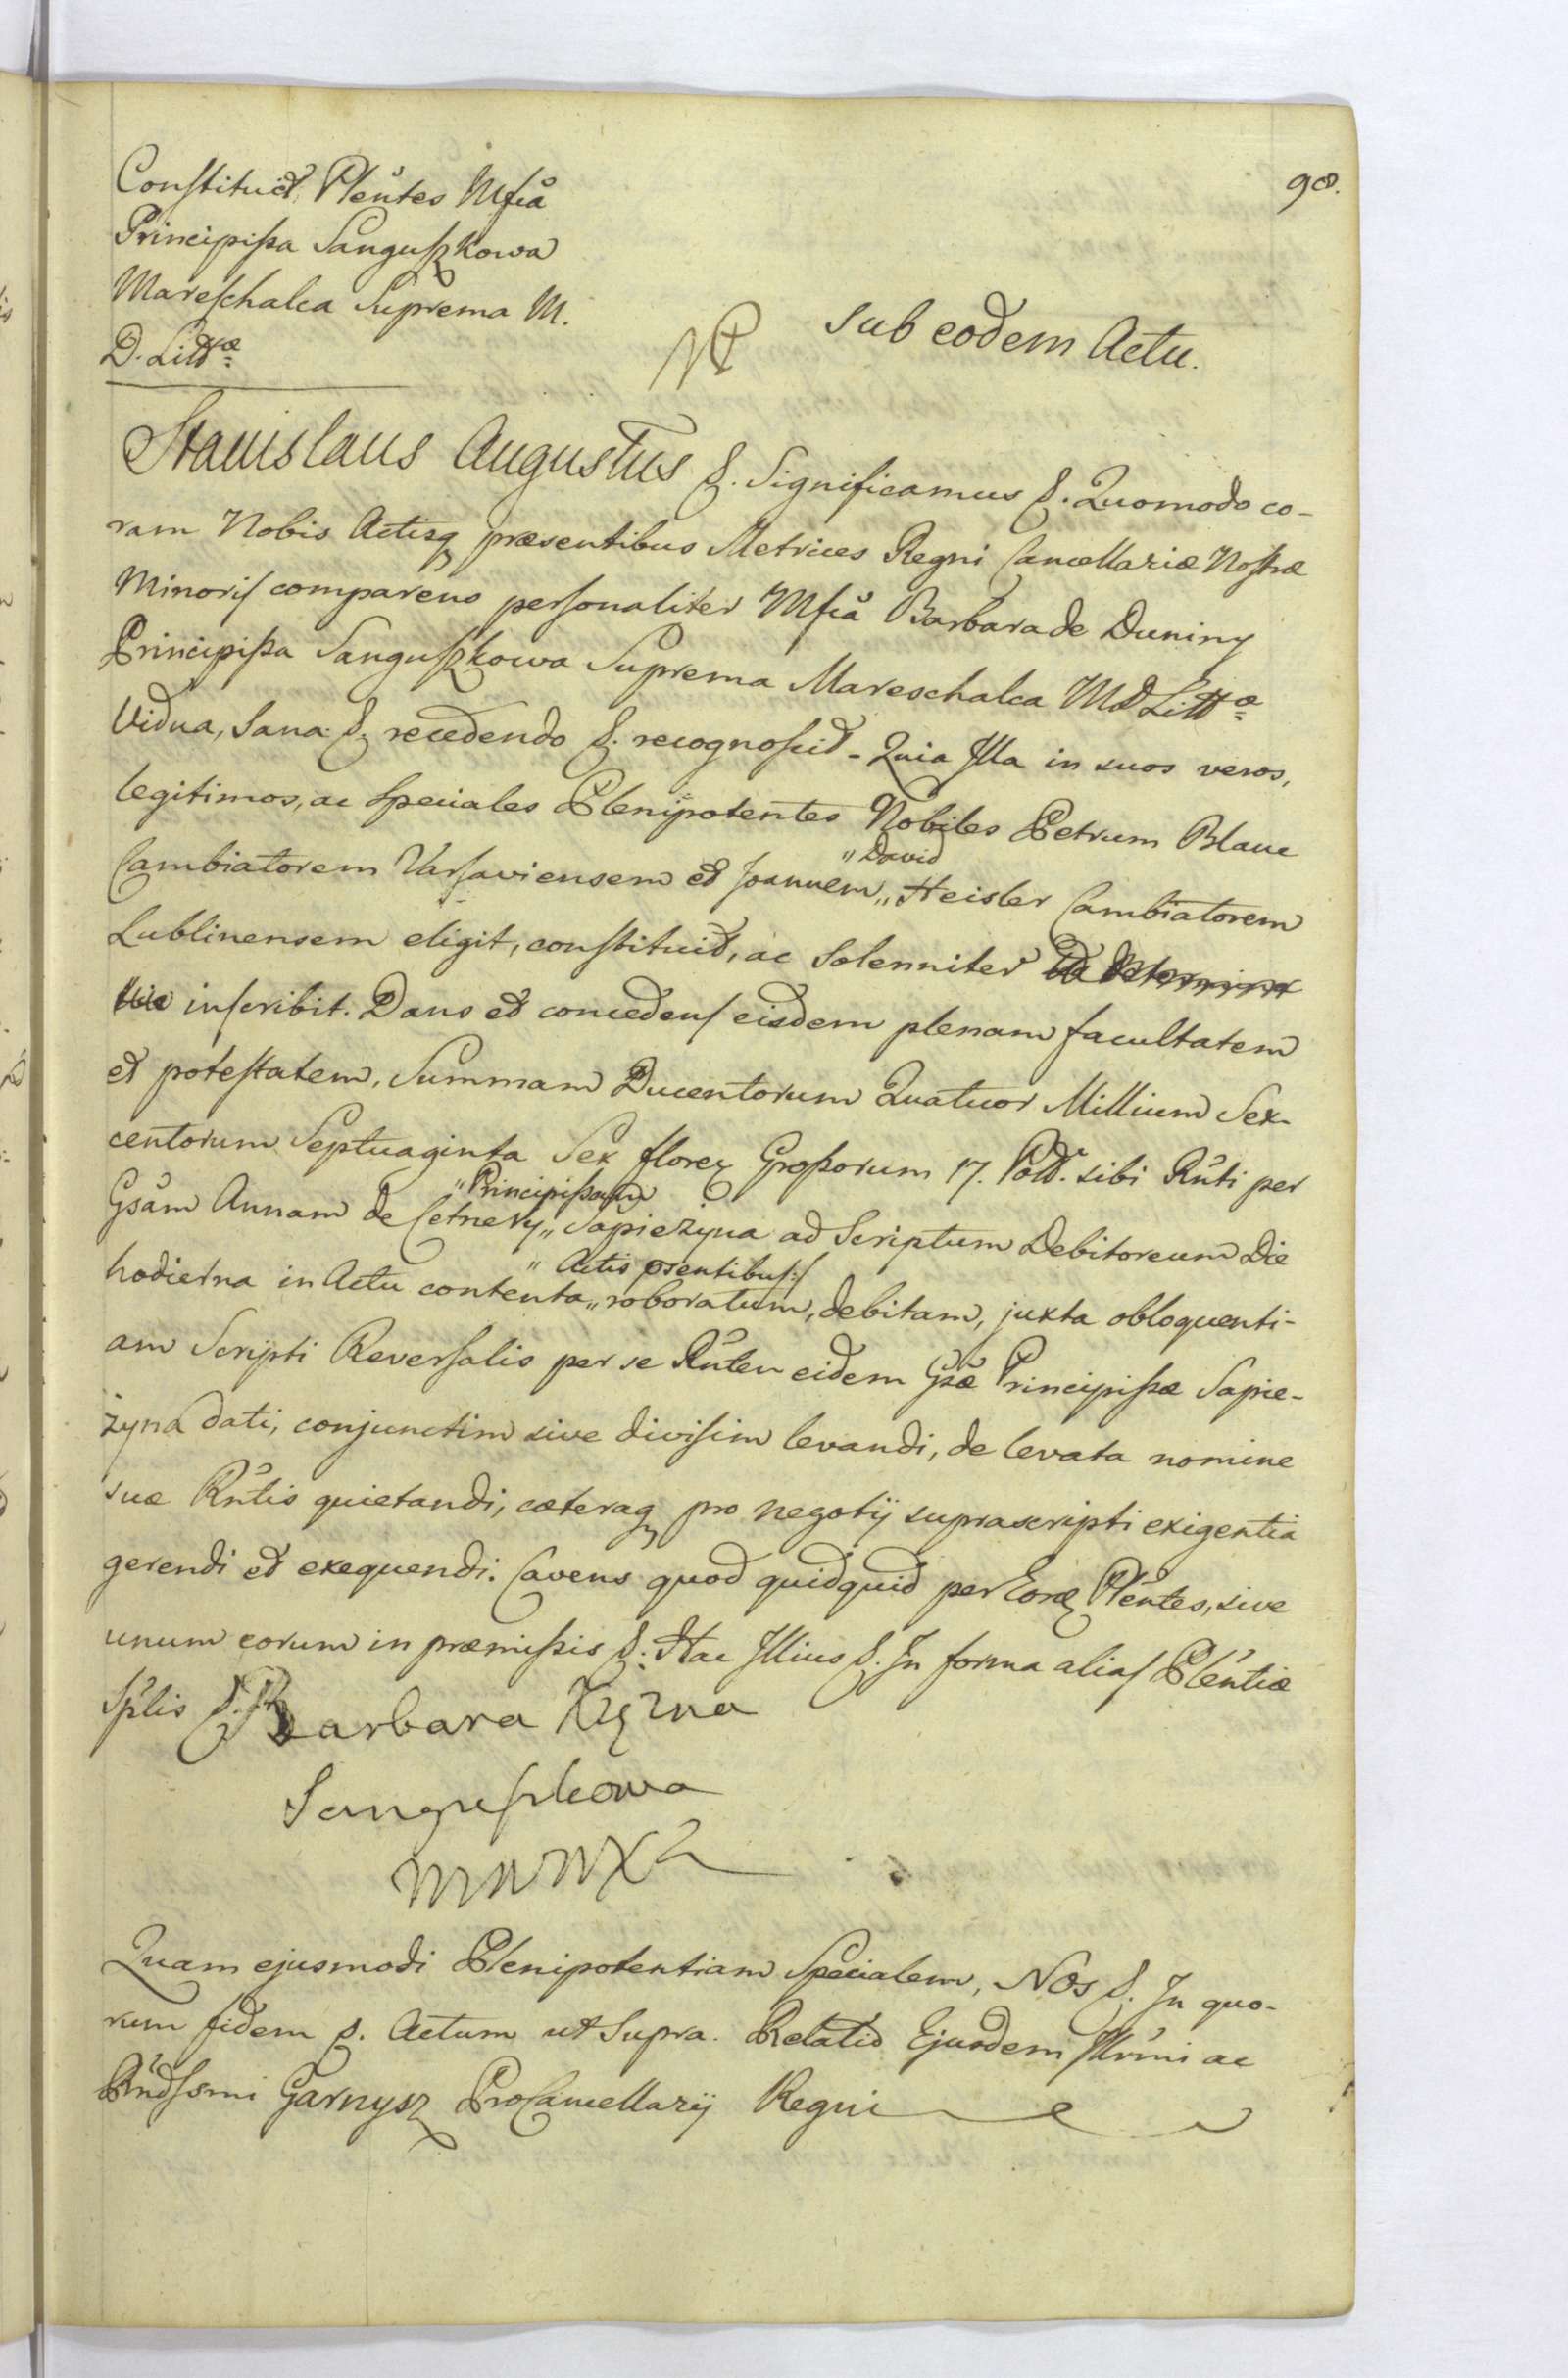 98.
Constituit Plẽntes Mfica
Principissa Sanguszkowa
Mareschalca Suprema M.
D. Littæ
sub eodem Actu.
Stanislaus Augustus &. Significamus &. Quomodo co-
ram Nobis Actisq præsentibus Metrices Regni Cancellariæ Nostræ
Minoris comparens personaliter Mfica Barbara de Duniny
Principissa Sanguszkowa Suprema Mareschalca MD Littæ
Vidua, Sana &. recedendo &. recognoscit - Quia Illa in suos veros,
legitimos, ac speciales Plenipotentes Nobiles Petrum Blanc
Cambiatorem Varsaviensem et Joannem „ David „ Heisler Cambiatorem
Lublinensem eligit, constituit, ac Solenniter
inscribit. Dans et concedens eisdem plenam facultatem
et potestatem, Summam Ducentorum Quatuor Millium Sex-
centorum Septuaginta Sex floreq Grossorum 17. Polł. sibi Rñti per
Gsam Annam de Cetnery „ Principissam „ Sapieżyna ad Scriptum Debitoreum Die
hodierna in Actu contenta „ Actis pẽntibus :/ roboratum, debitam, juxta obloquenti-
am Scripti Reversalis per se Rñtem eidem Gsæ Principissæ Sapie-
żyna dati, conjunctim sive divisim levandi, de levata nomine
suæ Rñtis quietandi, cæteraq pro negotij suprascripti exigentia
gerendi et exequendi. Cavens quod quidquid per Eosd Plẽntes, sive
unum eorum in præmissis &. Hac Illius &. In forma alias Plẽntiæ
Splis &.
Barbara Xzna
Sanguszkowa
MWWXL
Quam ejusmodi Plenipotentiam Specialem, Nos &. In quo-
rum fidem &. Actum ut Supra. Relatio Ejusdem Illrmi ac
Rndssmi Garnysz ProCancellarij Regni